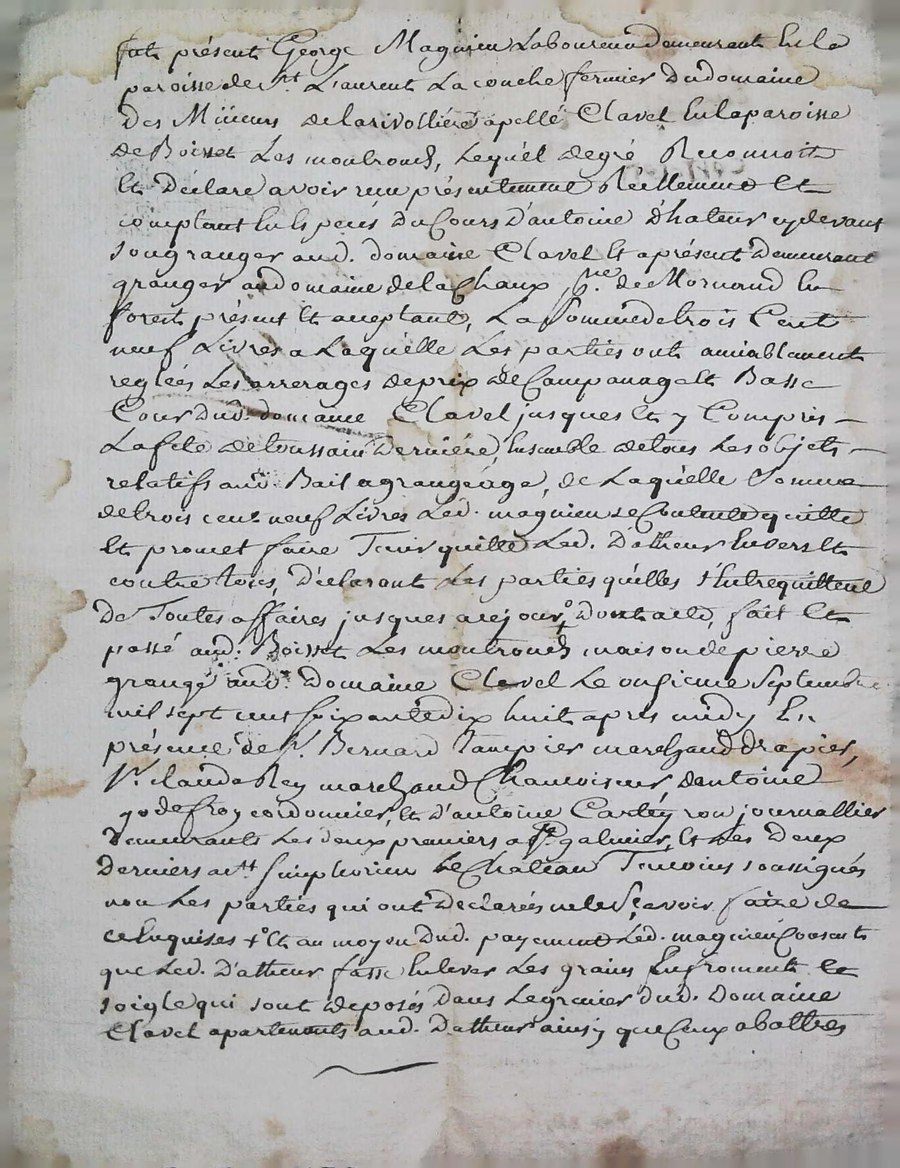 fut présent George Magnien Laboureur demeurant en la
paroisse de St Laurent La couche fermier du domaine
des Miüeurs delarivollière apellé Clavel en la paroisse
de Boisset Les montrond, Lequel degré Reconnoit
Et Déclare avoir reçu présentement Réellement Et
comptant En Especes Du Cours D'antoine D'hateur cydevant
son granger aud. domaine Clavel Et aprésent Demeurant
granger au domaine de la Chaux, psse de Mornand En
forest présent Et acceptant, La Somme de trois Cent
neuf Livres a Laquélle Les parties ont amiablement
reglées Les arrerages de prix de Campanage Et Basse
Cour Dud. domaine Clavel jusques Et y Compris
La fete de toussaint Dernière, Ensemble de tous Les objets
relatifs aud. Bail a grangéage, de Laquélle Somme
de trois cent neuf Livres Led. magnien se Contente quitte
Et promet faire Tenir quitte Led. D'atheur Envers Et
contre tous, Déclarant Les parties qu'elles s'Entrequittent
De Toutes affaires jusques a ce jour, Dont acte, fait Et
passé aud. Boisset Les montrond maison de pierre
grange aud. Domaine Clavel Le onzieme Septembre
mil sept cent soixante dix huit après midy En
présence de Sr. Bernard Tampier marchand drapier,
Sr. claude Rey marchand Chamoiseur, d'antoine
godefroy cordonnier, Et d'antoine Carteyron journallier
Demeurants Les deux premiers a St galmier, Et Les Deux
Derniers a St Simphorien Le Chateau Temoins soussignés
non Les parties qui ont Déclarés ne le Sçavoir faire de
ce Enquises + Et au moyen Dud. payement Led. magnien Consent
que Led. D'atheur fasse Enlever Les grains En froment Et
soigle qui sont deposés Dans Le grenier dud. Domaine
Clavel apartenants aud. Datheur ainsy que Ceux a battres